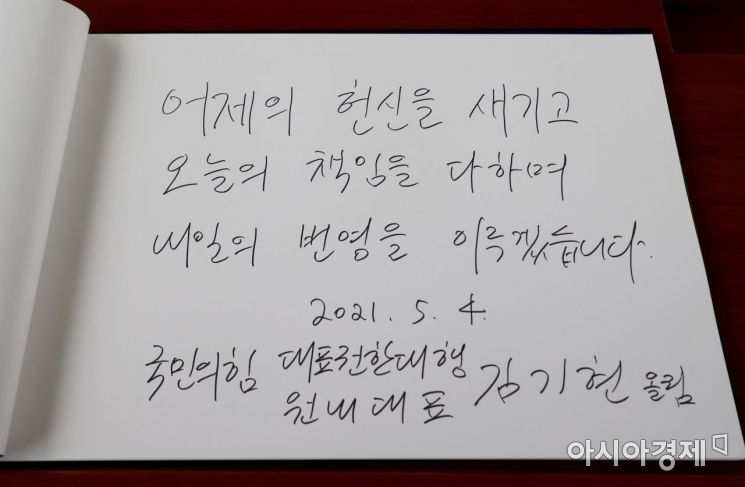 어제의 헌신을 새기고
오늘의 책임을 다하며
내일의 번영을 이루겠습니다.
2021. 5. 4.
국민의힘 대표권한대행
원내대표 김기현 올림
아시아경제